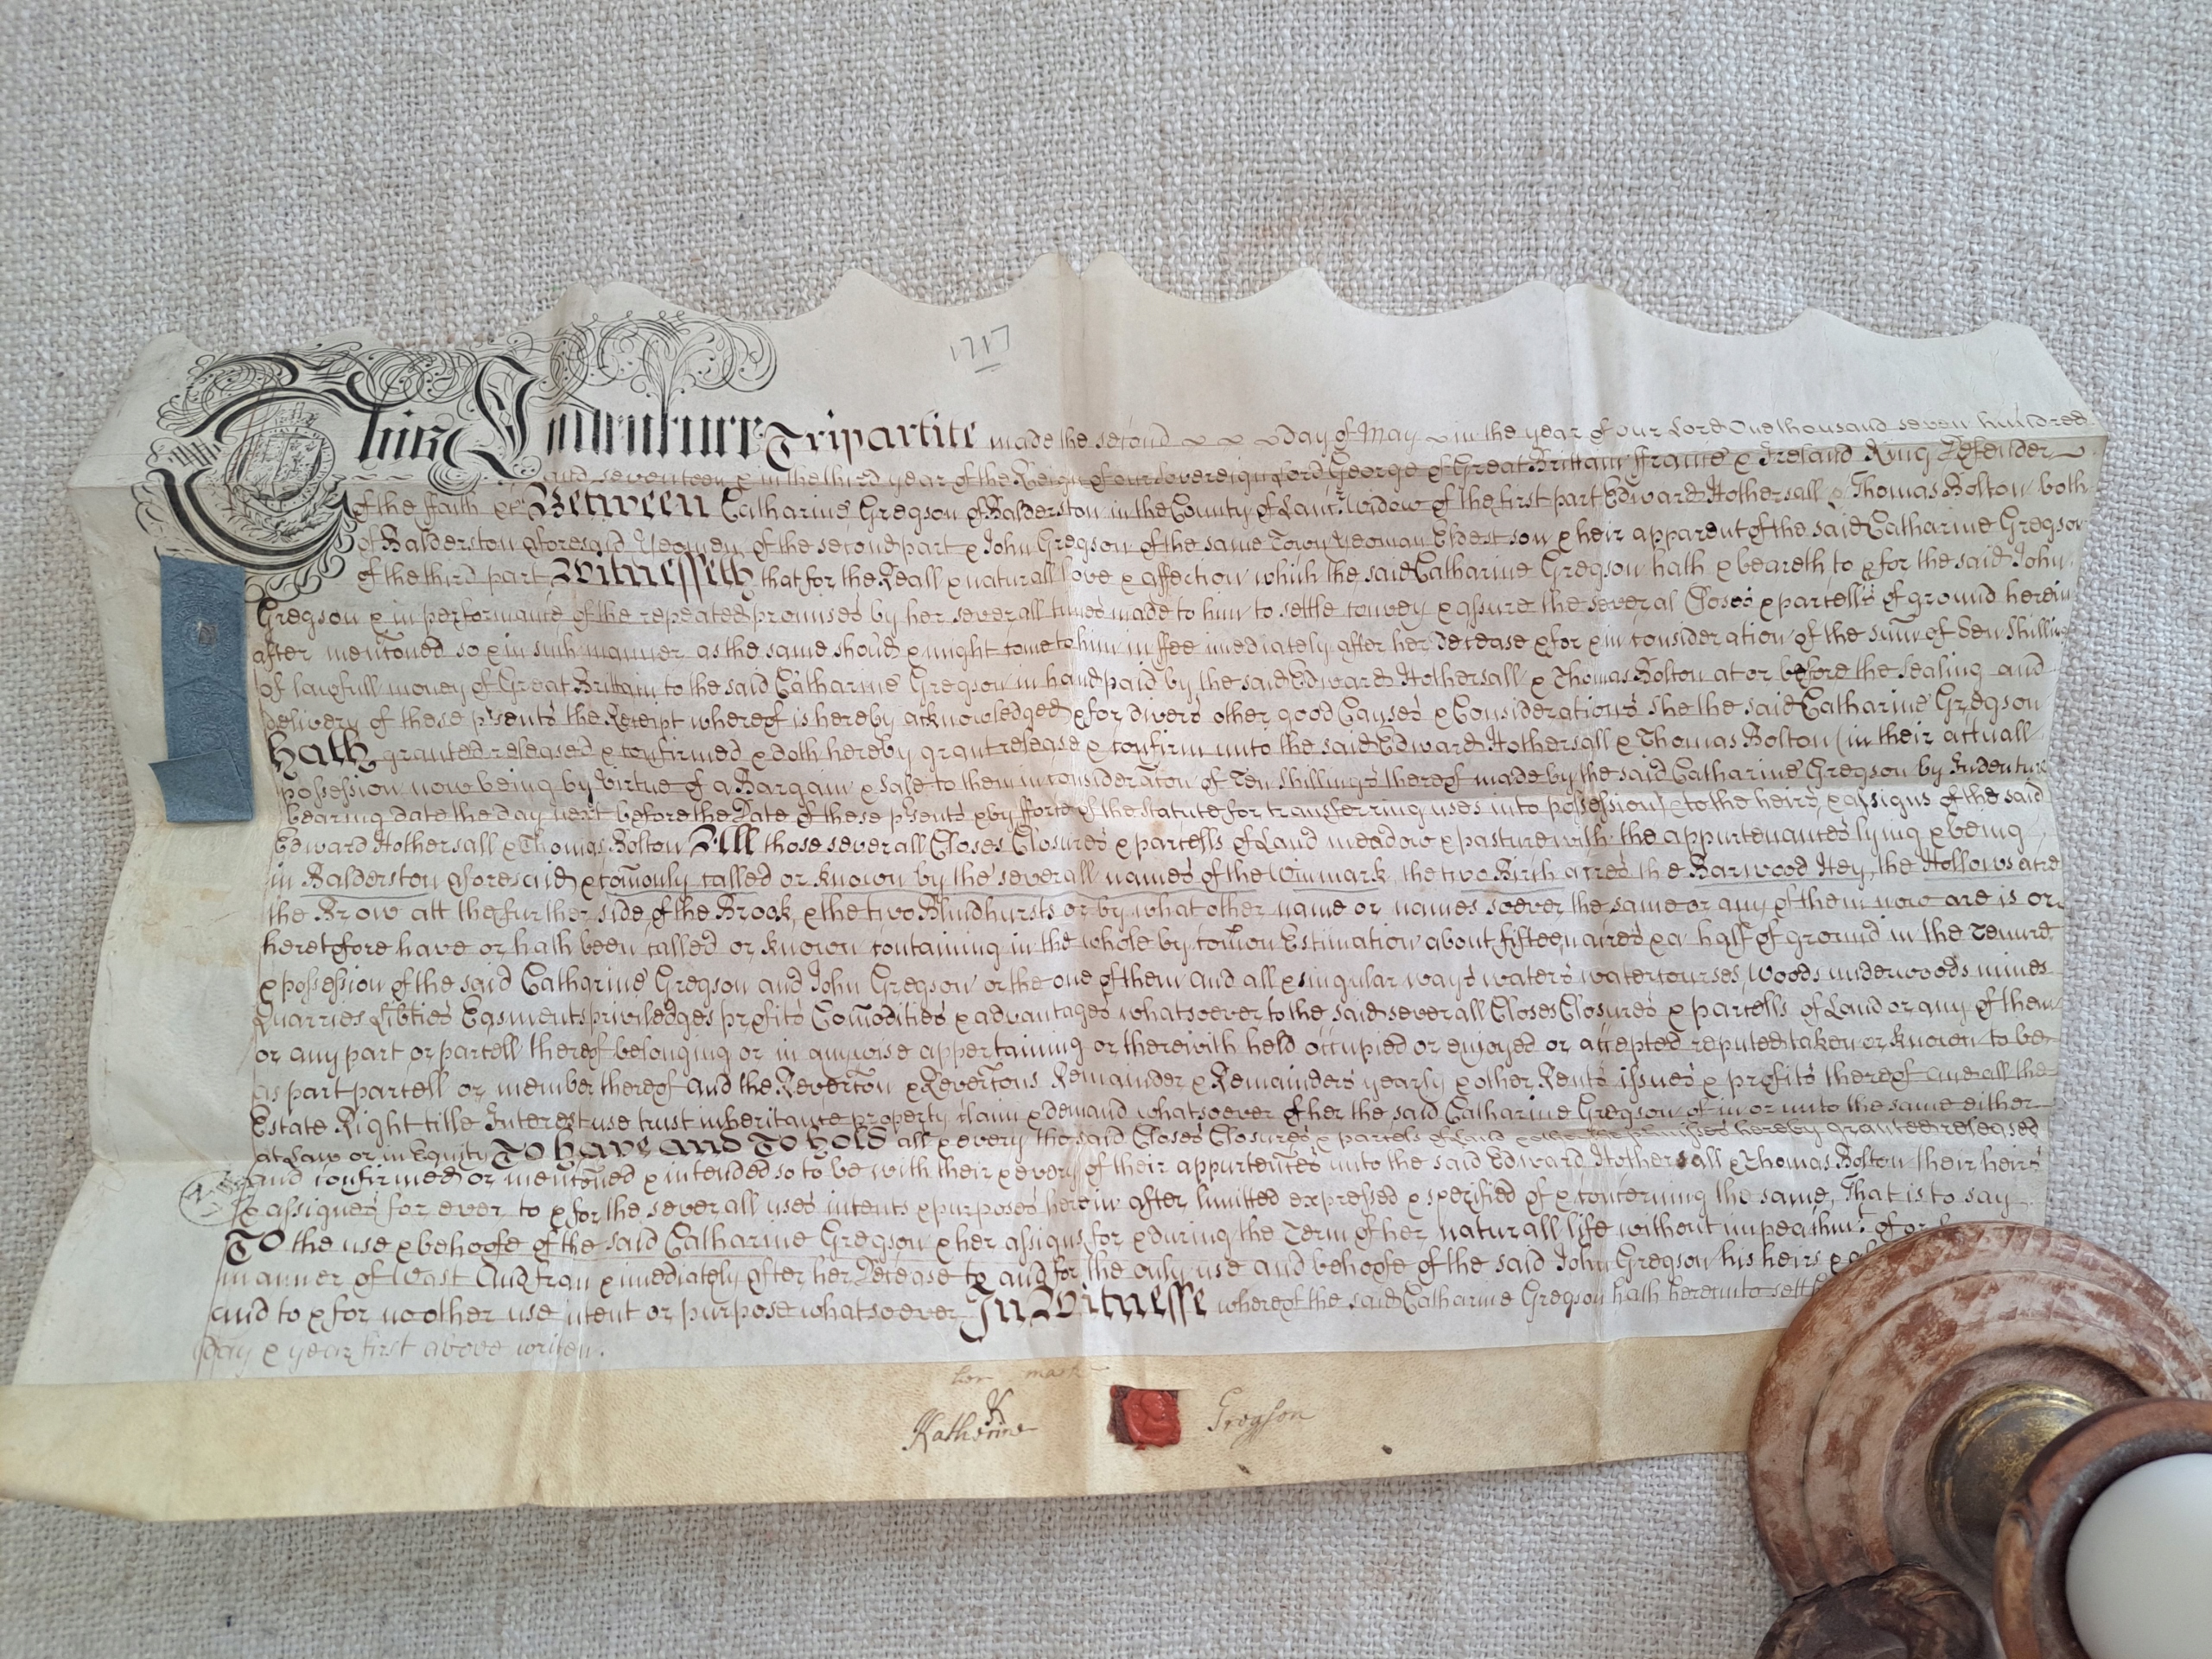 1717
This Indenture Tripartite made the second day of May in the year of our Lord One thousand seven hundred
and seventeen & in the third year of the Reign of our Sovereign Lord George of Great Brittain ffrance & Ireland King Defender
of the ffaith &c Between Catharine Gregson of Balderston in the County of Lanc.r Widow of the first part Edward Hothersall & Thomas Bolton both
of Balderston aforesaid Yeomen of the second part & John Gregson of the same Town Yeoman Eldest son & heir apparent of the said Catharine Gregson
of the third part Witnesseth that for the Reall & naturall love & affection which the said Catharine Gregson hath & beareth to & for the said John
Gregson & in performance of the repeated promises by her severall times made to him to settle convey & assure the several Closes & parcells of ground herein
after menconed so & in such manner as the same should & might come to him in ffee imediately after her Decease & for & in consideration of the sum of Ten Shillings
of lawfull money of Great Brittain to the said Catharine Gregson in hand paid by the said Edward Hothersall & Thomas Bolton at or before the sealing and
delivery of these p'sents the Receipt whereof is hereby acknowledged & for divers other good Causes & Considerations she the said Catharine Gregson
Hath granted released & confirmed & doth hereby grant release & confirm unto the said Edward Hothersall & Thomas Bolton (in their actuall
possession now being by Virtue of a Bargain & sale to them in consideracon of Ten Shillings thereof made by the said Catharine Gregson by Indenture
bearing date the day next before the Date of these p'sents & by fforce of the statute for transferring uses into possession) & to the heirs & assigns of the said
Edward Hothersall & Thomas Bolton All those severall Closes Closures & parcells of Land meadow & pasture with the appurtenances lying & being
in Balderston aforesaid & comonly called or known by the severall names of the Winmark, the two Birth acres the Barwood Hey, the Hollows acre
the Brow att the further side of the Brook, & the two Blindhursts or by what other name or names soever the same or any of them now are is or
heretofore have or hath been called or known containing in the whole by comon Estimation about fifteen acres & a half of ground in the Tenure
& possession of the said Catharine Gregson and John Gregson or the one of them And all & singular ways waters watercourses, Woods underwoods mines
Quarries Lib'ties Easments priviledges profits Comodities & advantages whatsoever to the said severall Closes Closures & parcells of Land or any of them
or any part or parcell thereof belonging or in anywise appertaining or therewith held occupied or enjoyed or accepted reputed taken or known to be
as part parcell or member thereof And the Revercon & Revercons Remainder & Remainders yearly & other Rents issues & profits thereof And all the
Estate Right title Interest use trust inheritance property claim & demand whatsoever of her the said Catharine Gregson of in or unto the same either
at Law or in Equity To have And To hold all & every the said Closes Closures & parcels of Land & premisses hereby granted released
and confirmed or menconed & intended so to be with their & every of their appurten'ces unto the said Edward Hothersall & Thomas Bolton their heirs
& assignes for ever to & for the severall uses intents & purposes herein after limitted expressed & specified of & concerning the same, That is to say
To the use & behoofe of the said Catharine Gregson & her assigns for & during the Term of her naturall life without impeachmt of or
manner of Wast And from & imediately after her Decease to and for the only use and behoofe of the said John Gregson his heirs &
and to & for no other use intent or purpose whatsoever In Witnesse whereof the said Catharine Gregson hath hereunto sett
day & year first above writen.
her mark
K
Katherine Gregson